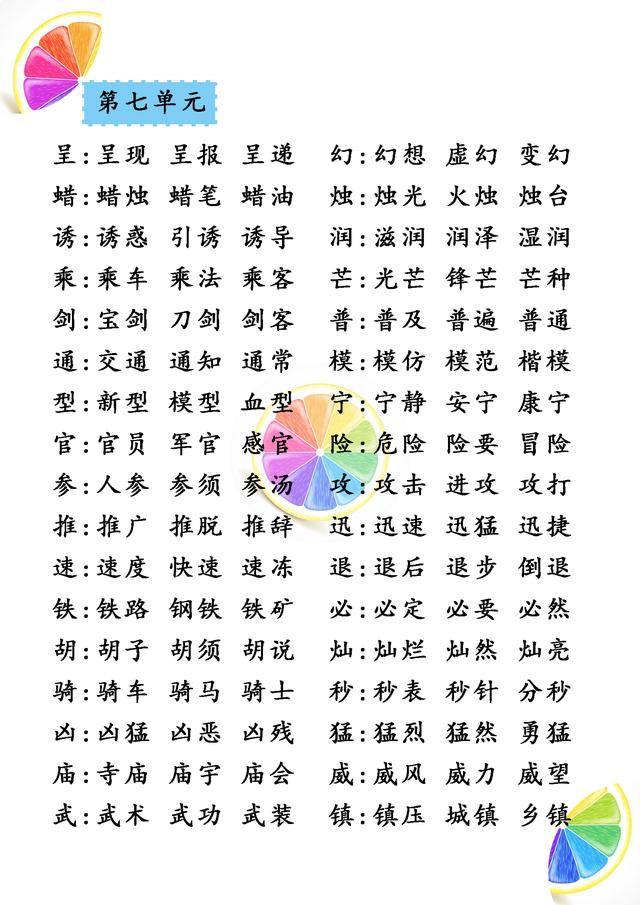 第七单元
呈:呈现 呈报 呈递 幻:幻想 虚幻 变幻
蜡:蜡烛 蜡笔 蜡油 烛:烛光 火烛 烛台
诱:诱惑 引诱 诱导 润:滋润 润泽 湿润
乘:乘车 乘法 乘客 芒:光芒 锋芒 芒种
剑:宝剑 刀剑 剑客 普:普及 普遍 普通
通:交通 通知 通常 模:模仿 模范 楷模
型:新型 模型 血型 宁:宁静 安宁 康宁
官:官员 军官 感官 险:危险 险要 冒险
参:人参 参须 参汤 攻:攻击 进攻 攻打
推:推广 推脱 推辞 迅:迅速 迅猛 迅捷
速:速度 快速 速冻 退:退后 退步 倒退
铁:铁路 钢铁 铁矿 必:必定 必要 必然
胡:胡子 胡须 胡说 灿:灿烂 灿然 灿亮
骑:骑车 骑马 骑士 秒:秒表 秒针 分秒
凶:凶猛 凶恶 凶残 猛:猛烈 猛然 勇猛
庙:寺庙 庙宇 庙会 威:威风 威力 威望
武:武术 武功 武装 镇:镇压 城镇 乡镇